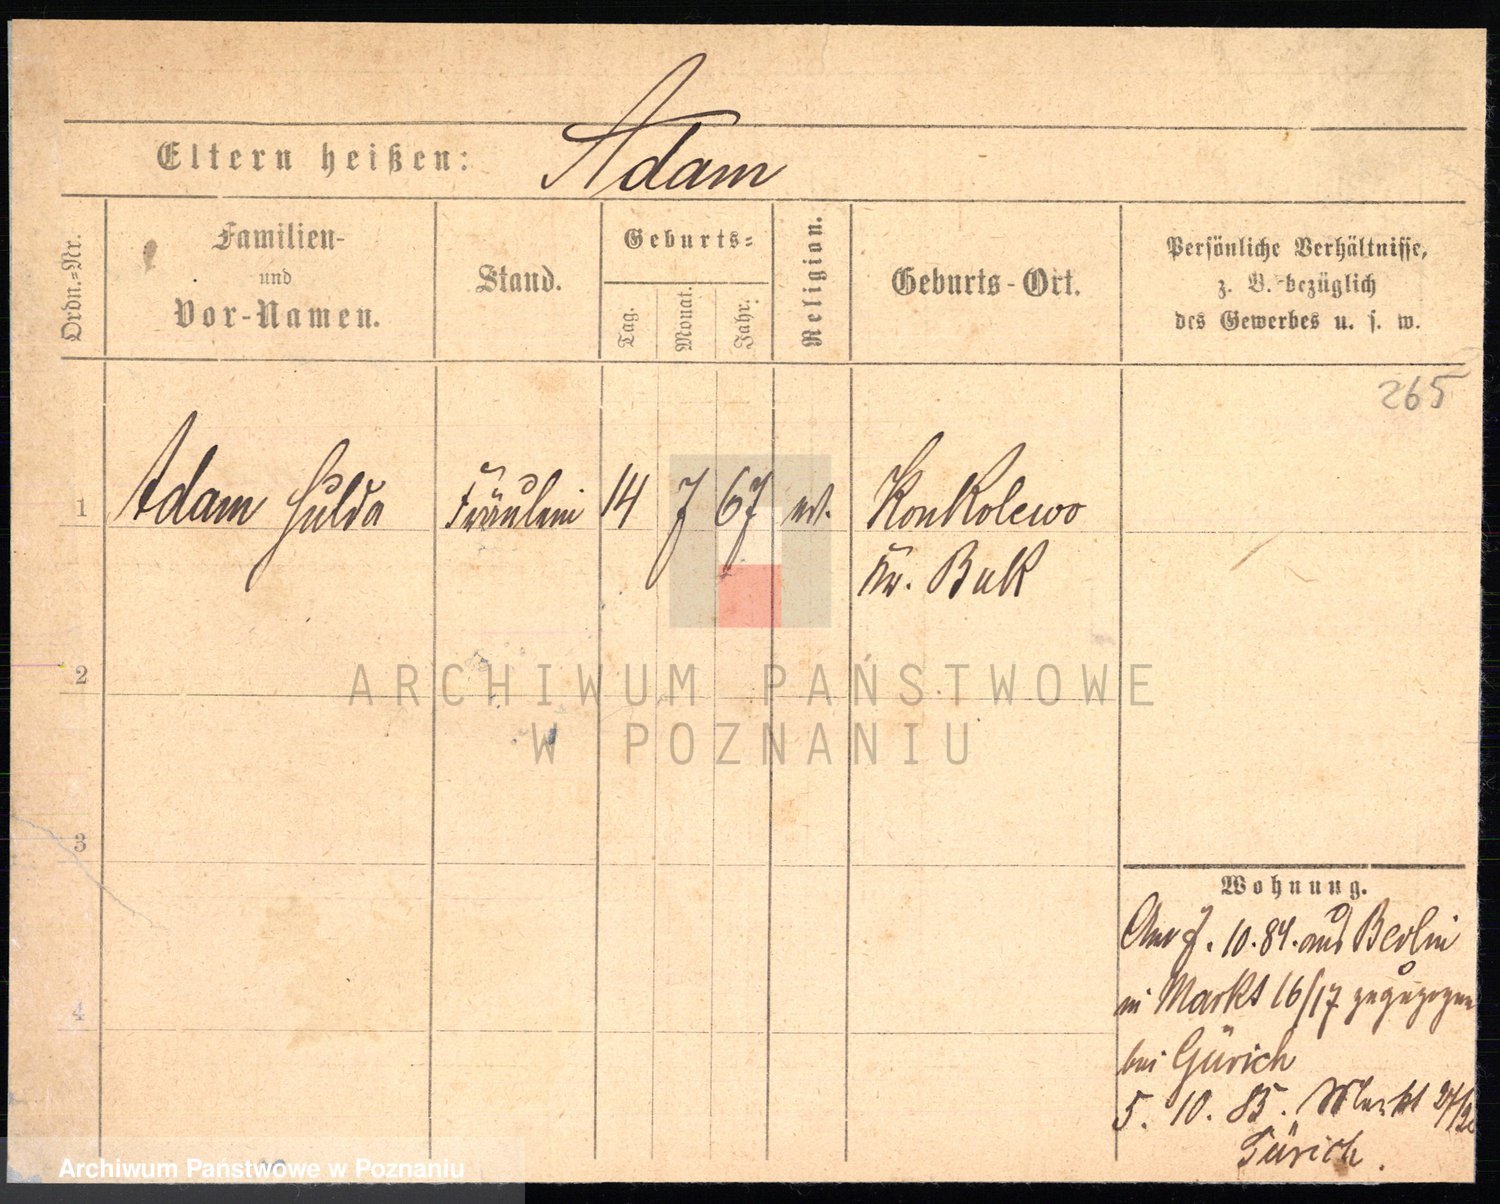 Adam
Eltern heißen:
Ordn.-Nr.
Familien-
und
Vor-Namen.
Stand.
Geburts-
Tag.
Monat.
Jahr.
Religion.
Geburts-Ort.
Persönliche Verhältnisse,
z. B. bezüglich
des Gewerbes u. s. w.
265
1 Adam Hulda Fräulein 14 7 67 ev. Konkolewo
Kr. Buk
2
ARCHIWUM PAŃSTWOWE
W POZNANIU
3
Wohnung.
Am 7. 10. 84. aus Berlin
in Markt 16/17 zugezogen
4
bei Gürich
5. 10. 85. Markt
Gürich.
Archiwum Państwowe w Poznaniu